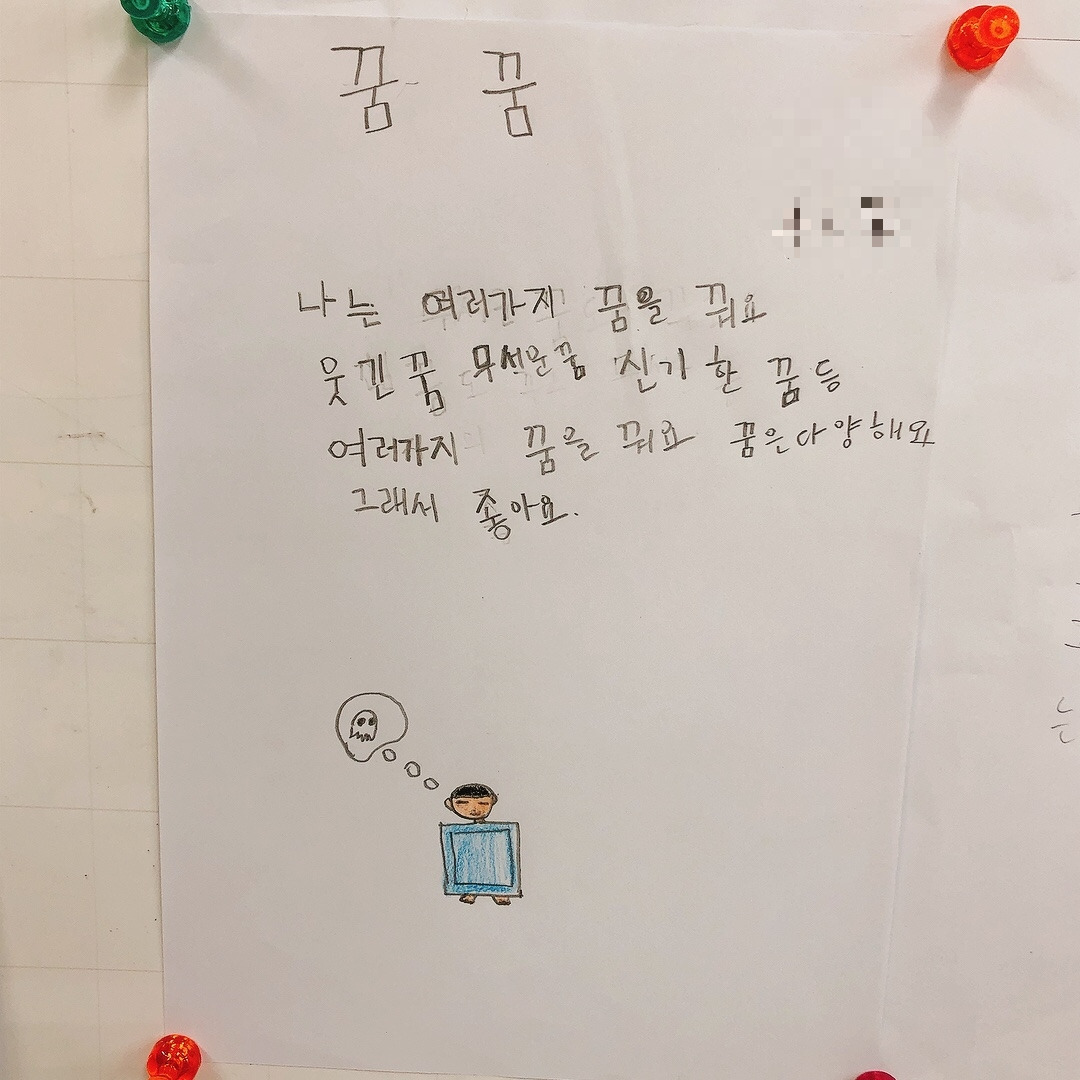 꿈 꿈
나는 여러가지 꿈을 꿔요
웃긴꿈 무서운꿈 신기한 꿈등
여러가지 꿈을 꿔요 꿈은다양해요
그래서 좋아요.